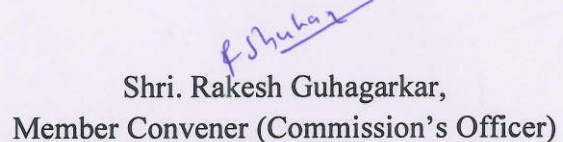 Shri. Rakesh Guhagarkar,
Member Convener (Commission's Officer)